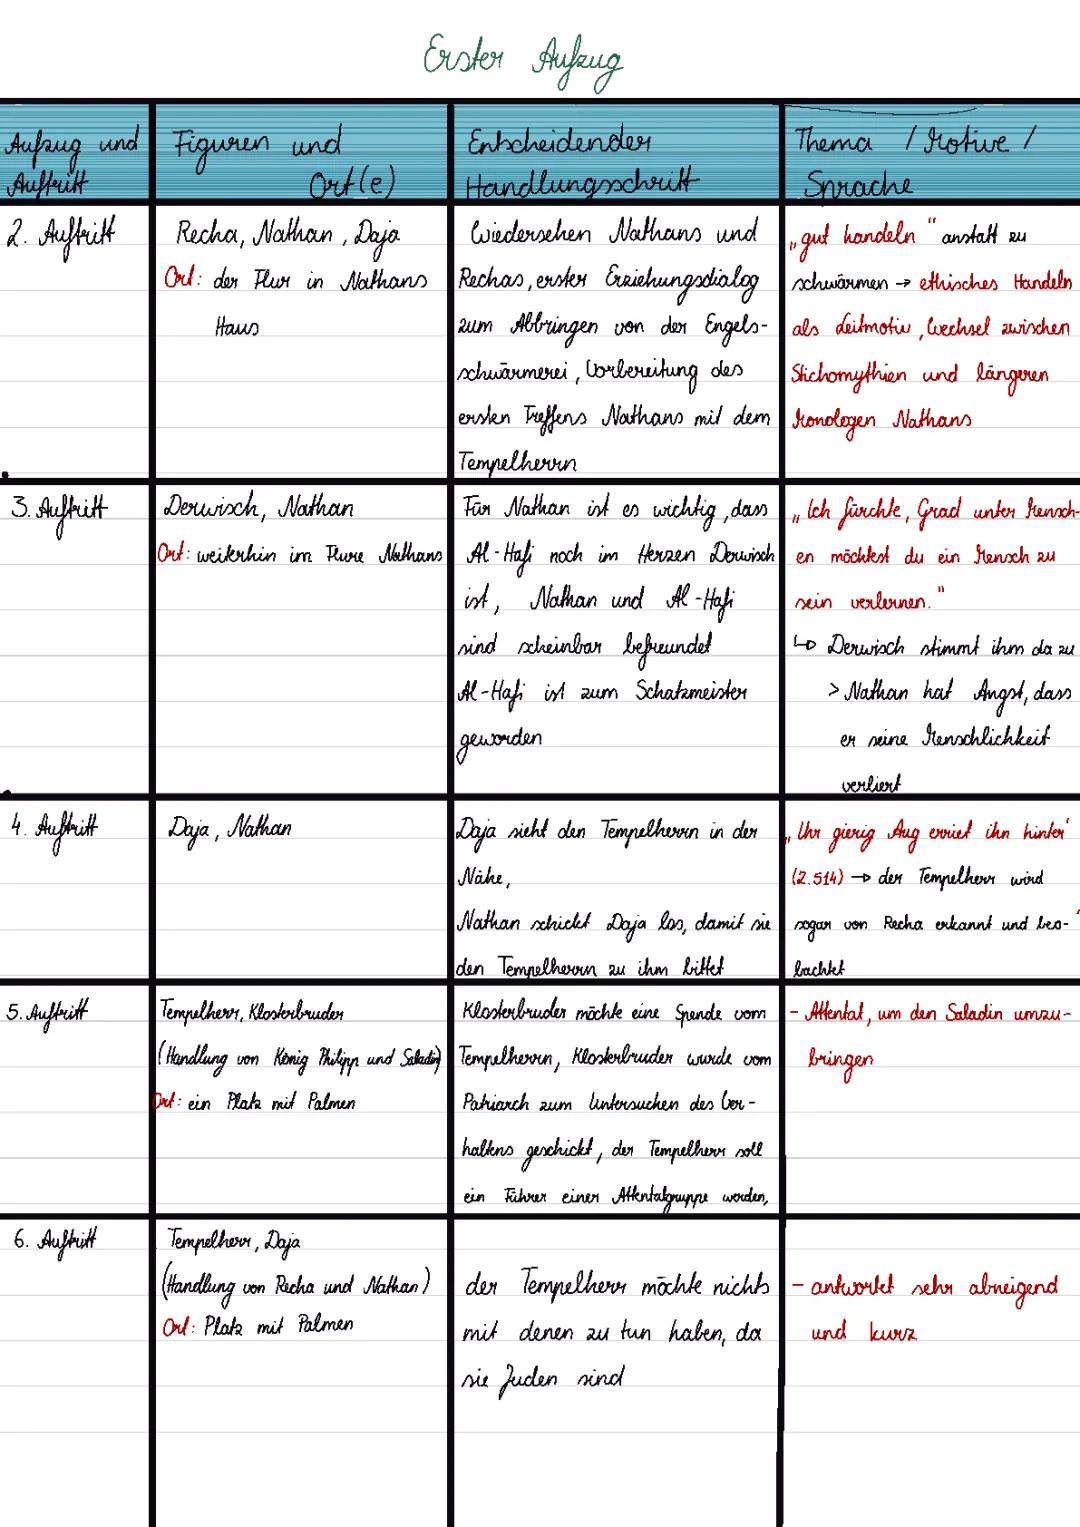 Erster Aufzug
Aufzug und
Auftritt
Figuren und
Ort(e)
Entscheidender
Handlungsschritt
Thema / Motive /
Sprache
2. Auftritt
Recha, Nathan, Daja
Ort: der Flur in Nathans
Haus
Wiedersehen Nathans und
Rechas, erster Erziehungsdialog
zum Abbringen von der Engels-
schwärmerei, Vorbereitung des
ersten Treffens Nathans mit dem
Tempelherrn
„gut handeln" anstatt zu
schwärmen → ethisches Handeln
als Leitmotiv, Wechsel zwischen
Stichomythien und längeren
Monologen Nathans
3. Auftritt
Derwisch, Nathan
Ort: weiterhin im Flure Nathans
Für Nathan ist es wichtig, dass
Al-Hafi noch im Herzen Derwisch
ist, Nathan und Al-Hafi
sind scheinbar befreundet
Al-Hafi ist zum Schatzmeister
geworden
„Ich fürchte, Grad unter Mensch-
en möchtest du ein Mensch zu
sein verlernen."
↳ Derwisch stimmt ihm da zu
> Nathan hat Angst, dass
er seine Menschlichkeit
verliert
4. Auftritt
Daja, Nathan
Daja sieht den Tempelherrn in der
Nähe,
Nathan schickt Daja los, damit sie
den Tempelherrn zu ihm bittet
„Ihr gierig Aug erriet ihn hinter'
(Z.514) → der Tempelherr wird
sogar von Recha erkannt und beo-
bachtet
5. Auftritt
Tempelherr, Klosterbruder
(Handlung von König Philipp und Saladin)
Ort: ein Platz mit Palmen
Klosterbruder möchte eine Spende vom
Tempelherrn, Klosterbruder wurde vom
Patriarch zum Untersuchen des Ver-
haltens geschickt, der Tempelherr soll
ein Führer einer Attentatgruppe werden,
- Attentat, um den Saladin umzu-
bringen
6. Auftritt
Tempelherr, Daja
(Handlung von Recha und Nathan)
Ort: Platz mit Palmen
der Tempelherr möchte nichts
mit denen zu tun haben, da
sie Juden sind
- antwortet sehr abneigend
und kurz